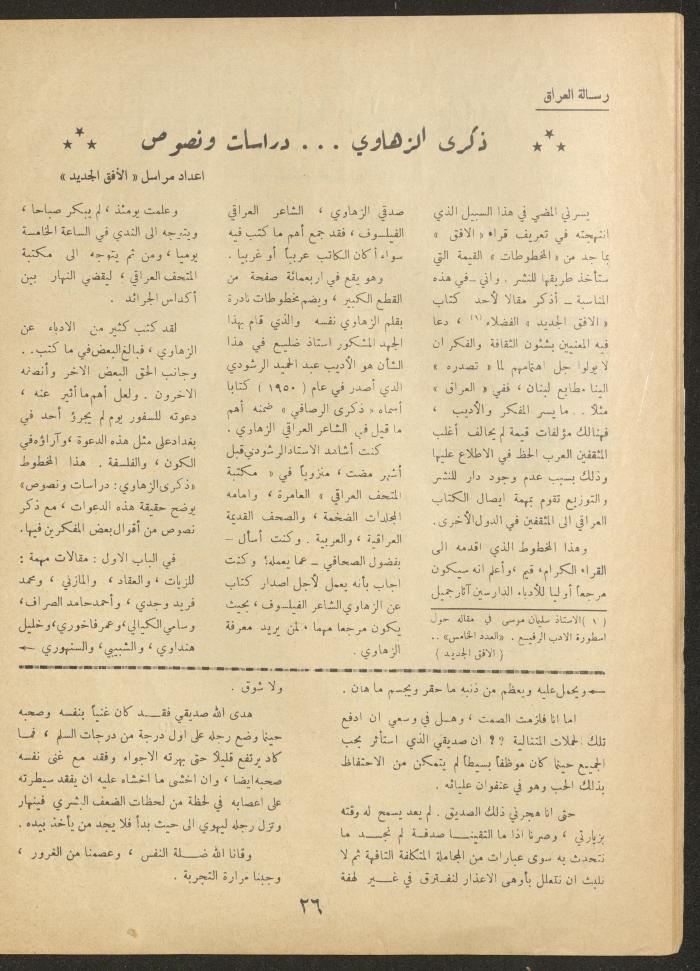 رسالة العراق
ذكرى الزهاوي ... دراسات ونصوص
اعداد مراسل « الأفق الجديد »
يسرني المضي في هذا السبيل الذي
انتهجته في تعريف قراء « الافق »
بما جد من « المخطوطات » القيمة التي
ستأخذ طريقها للنشر . واني – في هذه
المناسبة – أذكر مقالا لأحد كتاب
« الافق الجديد » الفضلاء (١) ، دعا
فيه المعنيين بشئون الثقافة والفكر ان
لا يولوا جل اهتمامهم لما « تصدره »
الينا مطابع لبنان ، ففي « العراق »
مثلا .. ما يسر المفكر والأديب ،
فهنالك مؤلفات قيمة لم يحالف أغلب
المثقفين العرب الحظ في الاطلاع عليها
وذلك بسبب عدم وجود دار للنشر
والتوزيع تقوم بمهمة ايصال الكتاب
العراقي الى المثقفين في الدول الأخرى.
وهذا المخطوط الذي اقدمه الى
القراء الكرام، قيم ، وأعلم انه سيكون
مرجعاً أوليا للأدباء الدارسين آثار جميل
( ١ ) الاستاذ سليمان موسى في مقاله حول
اسطورة الادب الرفيع . « العدد الخامس » ..
( الافق الجديد )
صدقي الزهاوي ، الشاعر العراقي
الفيلسوف ، فقد جمع أهم ما كتب فيه
سواء أكان الكاتب عربياً أو غربيا .
وهو يقع في اربعمائة صفحة من
القطع الكبير ، ويضم مخطوطات نادرة
بقلم الزهاوي نفسه والذي قام بهذا
الجهد المشكور استاذ ضليع في هذا
الشأن هو الأديب عبد الحميد الرشودي
الذي أصدر في عام ( ١٩٥٠ ) كتابا
أسماه « ذكرى الرصافي » ضمنه أهم
ما قيل في الشاعر العراقي الزهاوي .
كنت أشاهد الاستاد الرشودي قبل
أشهر مضت ، منزوياً في « مكتبة
المتحف العراقي » العامرة ، وامامه
المجلدات الضخمة ، والصحف القديمة
العراقية ، والعربية . وكنت أسأل –
بفضول الصحافي – عما يعمله؟ وكنت
اجاب بأنه يعمل لأجل اصدار كتاب
عن الزهاوي الشاعر الفيلسوف ، بحيث
يكون مرجعا مهما ، لمن يريد معرفة
الزهاوي .
وعلمت يومئذ ، لم يبكر صباحا ،
ويتوجه الى الندي في الساعة الخامسة
يوميا ، ومن ثم يتوجه الى مكتبة
المتحف العراقي ، ليقضي النهار بين
أكداس الجرائد .
لقد كتب كثير من الادباء عن
الزهاوي ، فبالغ البعض في ما كتب ..
وجانب الحق البعض الاخر وأنصفه
الاخرون . ولعل أهم ما أثير عنه ،
دعوته للسفور يوم لم يجرؤ أحد في
بغداد على مثل هذه الدعوة ، وآراؤه في
الكون ، والفلسفة . هذا المخطوط
« ذكرى الزهاوي : دراسات ونصوص »
يوضح حقيقة هذه الدعوات ، مع ذكر
نصوص من أقوال بعض المفكرين فيها.
في الباب الاول : مقالات مهمة :
للزيات ، والعقاد ، والمازني ، ومحمد
فريد وجدي ، وأحمد حامد الصراف،
وسامي الكيالي، وعمر فاخوري، وخليل
هنداوي ، والشبيبي ، والسنهوري ←
← ويحمل عليه ويعظم من ذنبه ما حقر ويجسم ما هان .
اما انا فلزمت الصمت ، وهل في وسعي ان ادفع
تلك الحملات المتتالية ؟؟ ان صديقي الذي استأثر بحب
الجميع حينما كان موظفاً بسيطاً لم يتمكن من الاحتفاظ
بذلك الحب وهو في عنفوان عليائه .
حتى انا هجرني ذلك الصديق . لم يعد يسمح له وقته
بزيارتي ، وصرنا اذا ما التقينا صدفة لم نجد ما
نتحدث به سوى عبارات من المجاملة المتكلفة التافهة ثم لا
نلبث ان نتعلل بأوهى الاعذار لنفترق في غير لهفة
ولا شوق .
هدى الله صديقي فقد كان غنياً بنفسه وصحبه
حينما وضع رجله على اول درجة من درجات السلم ، فما
كاد يرتفع قليلاً حتى بهرته الاجواء وفقد مع غنى نفسه
صحبه ايضا ، وان اخشى ما اخشاه عليه ان يفقد سيطرته
على اعصابه في لحظة من لحظات الضعف البشري فينهار
وتزل رجله ليهوي الى حيث بدأ فلا يجد من يأخذ بيده .
وقانا الله ضلة النفس ، وعصمنا من الغرور ،
وجنبنا مرارة التجربة .
٢٦